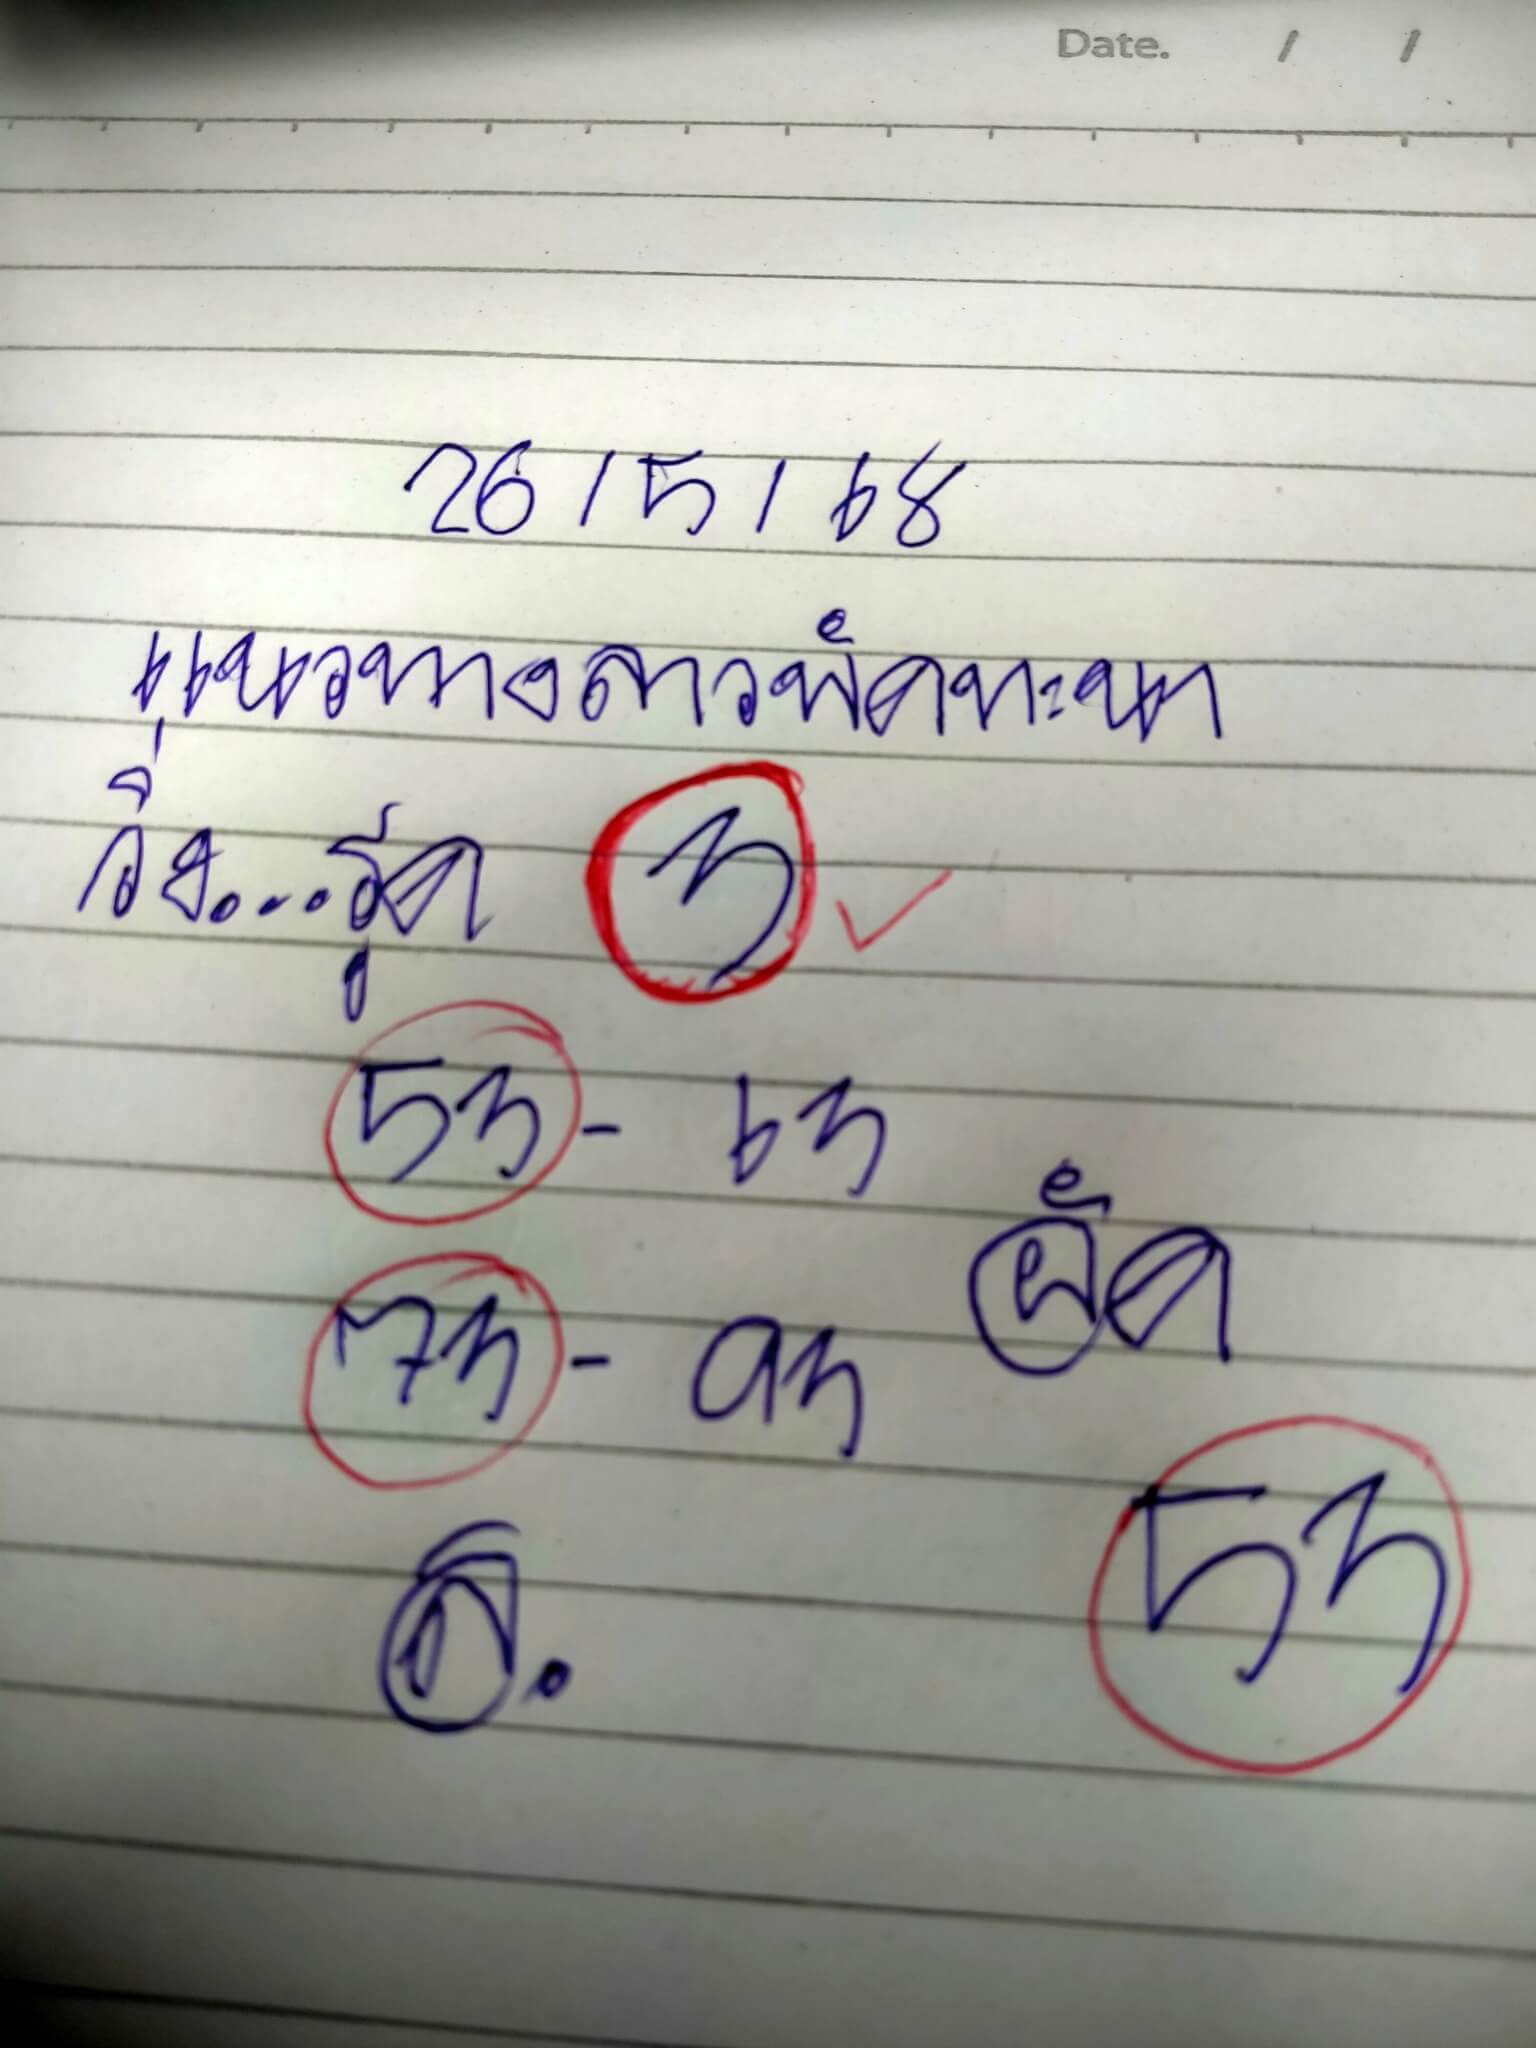 Date. / /
26/5/68
แนวทางลาวพัฒทะนา
วิ่ง...รูด 3
53 - 63
73 - 93
ผัด
53